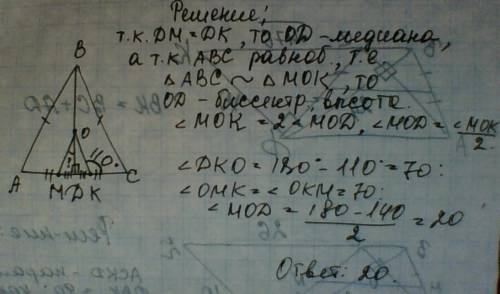 Решение:
т.к. DM = DK, то OD - медиана,
а т.к. ABC равноб., т.е
△ABC ~ △MOK, то
OD - биссектр, высота.
∠MOK = 2∠MOD, ∠MOD = ∠MOK/2.
∠DKO = 180° - 110° = 70:
∠OMK = ∠OKM = 70:
∠MOD = (180 - 140)/2 = 20
Ответ: 20.
B
O
A
M D K
C